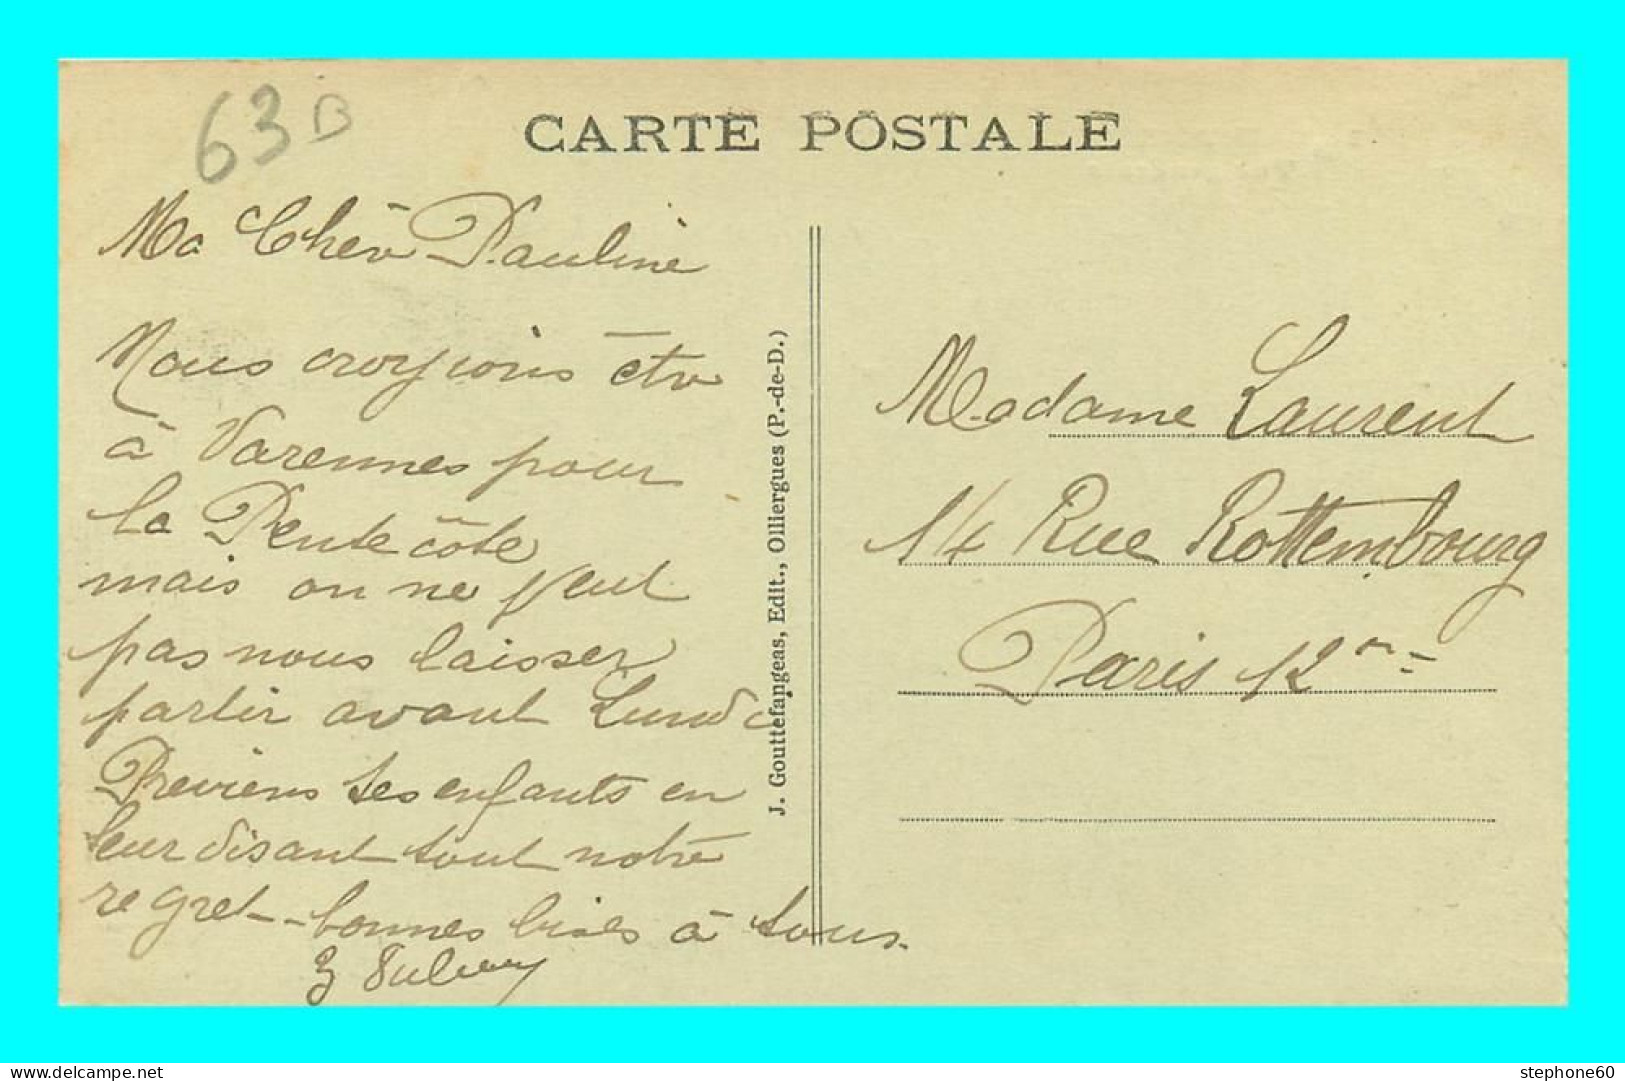 63 B
CARTE POSTALE
Ma Chère Pauline
Nous croyions être
à Varennes pour
la Pentecôte
mais on ne veut
pas nous laisser
partir avant Lundi
Previens tes enfants en
leur disant tout notre
regret - bonnes bises à tous.
J. Gouttefangeas, Edit., Olliergues (P.-de-D.)
Madame Laurent
14 Rue Rottembourg
Paris 12me
stephone60